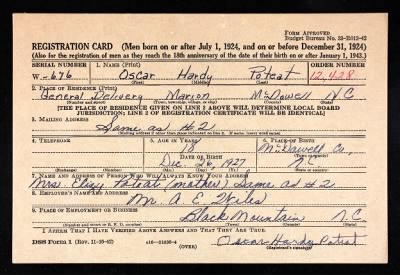 FORM APPROVED
Budget Bureau No. 33-R012-42
REGISTRATION CARD (Men born on or after July 1, 1924, and on or before December 31, 1924)
(Also for the registration of men as they reach the 18th anniversary of the date of their birth on or after January 1, 1943.)
SERIAL NUMBER 1. NAME (Print) ORDER NUMBER
W-676 Oscar Hardy Poteat 12,428
(First) (Middle) (Last)
2. PLACE OF RESIDENCE (Print)
General Delivery Marion McDowell N.C.
(Number and street) (Town, township, village, or city) (County) (State)
[THE PLACE OF RESIDENCE GIVEN ON LINE 2 ABOVE WILL DETERMINE LOCAL BOARD
JURISDICTION; LINE 2 OF REGISTRATION CERTIFICATE WILL BE IDENTICAL]
3. MAILING ADDRESS
Same as #2
4. TELEPHONE 5. AGE IN YEARS 6. PLACE OF BIRTH
18 McDowell Co.,
DATE OF BIRTH
Dec. 26, 1927 N.C.
7. NAME AND ADDRESS OF PERSON WHO WILL ALWAYS KNOW YOUR ADDRESS
Mrs. Poteat (mother) Same as #2
8. EMPLOYER'S NAME AND ADDRESS
Mr. A. E. Wiles
9. PLACE OF EMPLOYMENT OR BUSINESS
Black Mountain N.C.
(Number and street or R.F.D. number) (Town) (County) (State)
I AFFIRM THAT I HAVE VERIFIED ABOVE ANSWERS AND THAT THEY ARE TRUE.
DSS Form 1 (Rev. 11-16-42) (OVER) Oscar Hardy Poteat
(Registrant's signature)